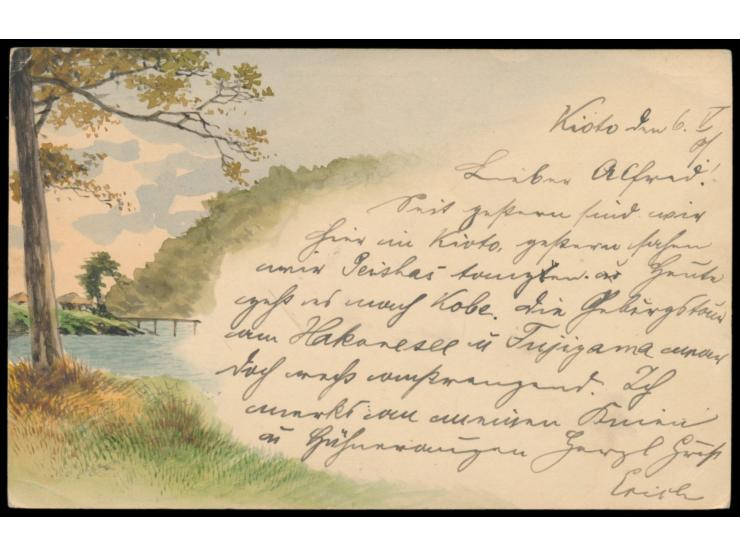 Kioto den 6. V
01
Lieber Alfred!
Seit gestern sind wir
hier in Kioto, gestern sahen
wir Geishas tanzen. Heute
geht es nach Kobe. Die Gebirgstour
am Hakonesee u Fujiyama war
doch recht anstrengend. Ich
merks an meinen Knien
u Hühneraugen Herzl Gruß
Erich